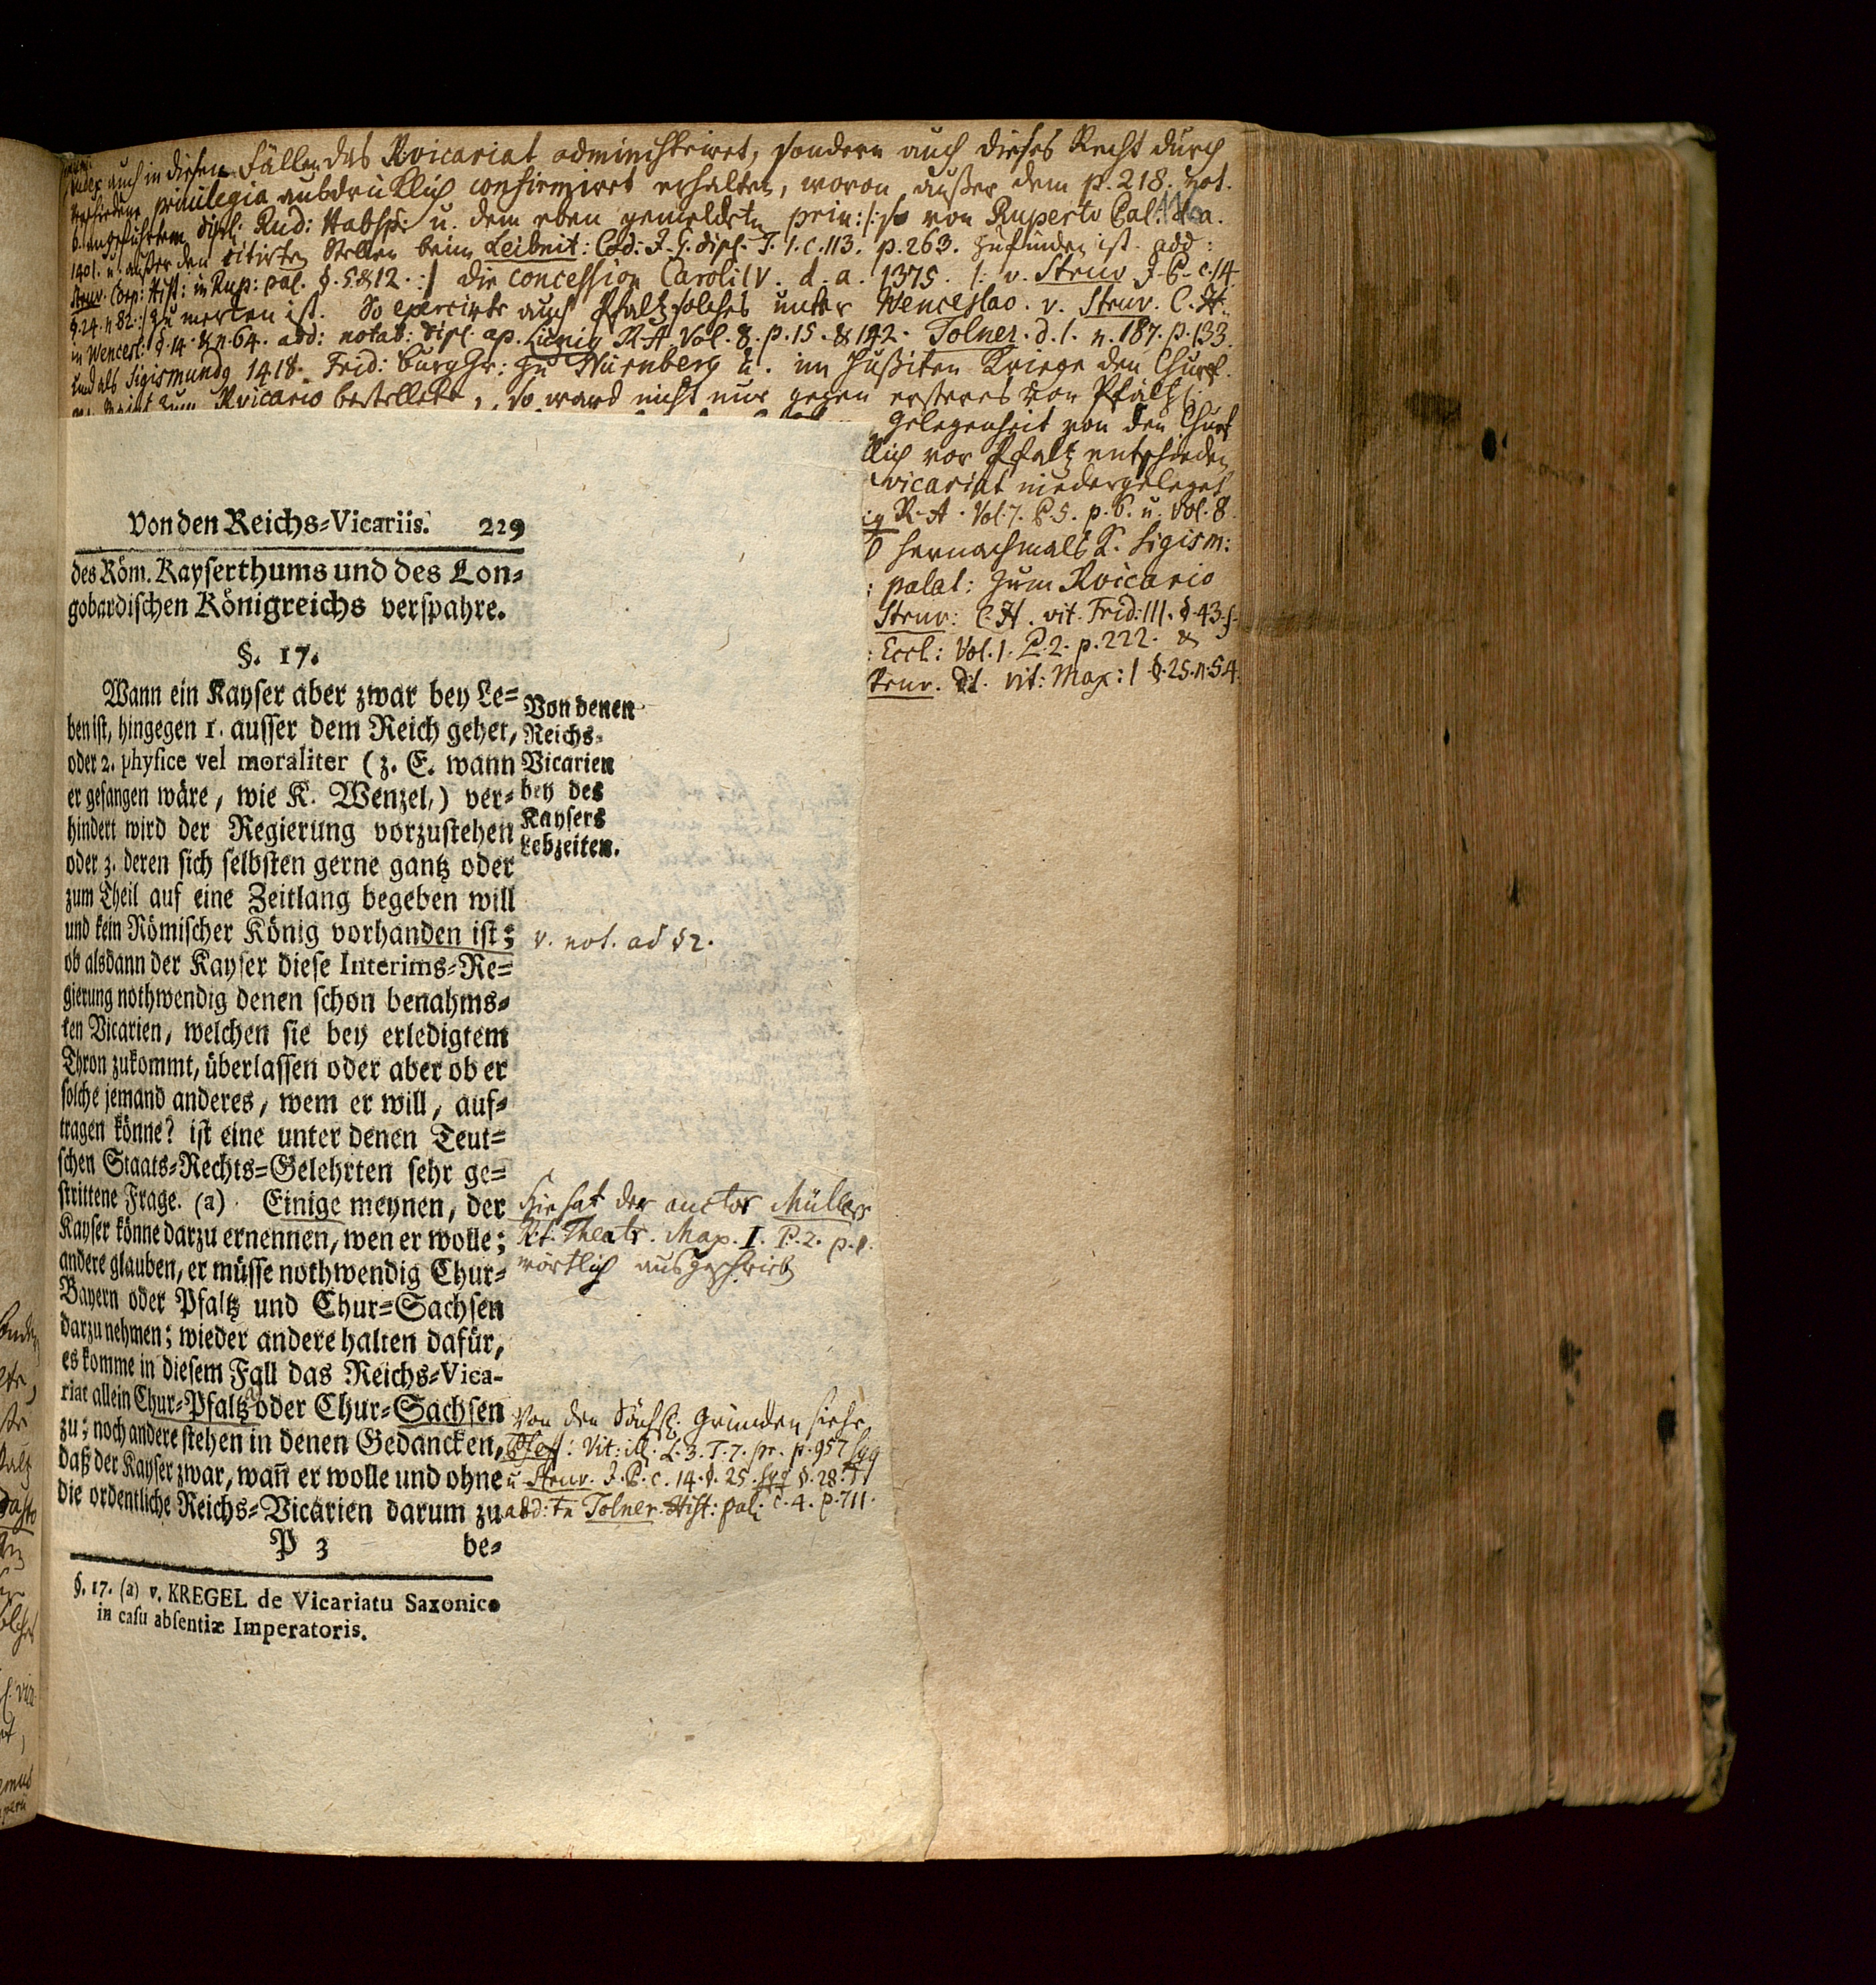 auch in diesen Fällen das Rvicariat administriret, sondern auch dieses Recht durch
verschiedene privilegia ausdrücklich confirmiret erhalten, wovon außer dem p. 218. not.
b. angeführtem dipl: Rud: Habsp: u. dem eben gemeldeten priv: /: so von Ruperto Pal: d. a.
1401. u. außer den citirten Stellen beim Leibnit: Cod: J. G. dipl. T. 1. c. 113. p. 263. zu finden ist. add:
Struv. Corp: Hist: in Rup: pal. §. 5 & 12. :/ die concession Caroli IV. d. a. 1375. /: v. Struv J. P. c. 14.
§. 24. n. 82. :/ zu merken ist. So exercirte auch Pfaltz solches unter Wenceslao. v. Struv. C. H.
in Wencesl: §. 14. & n. 64. add: notat: dipl. ap. Lünig R. A. Vol. 8. p. 15. & 142. Tolner. d. l. n. 187. p. 133.
und als Sigismundq 1418. Frid: Burggr: zu Nürnberg u. im Hußiten Kriege den Churf.
zum Rvicario bestellete, so ward nicht nur gegen ersteres von Pfaltz
Gelegenheit von den Churf
lich vor Pfaltz entschieden
vicariat niedergeleget
ig R. A. Vol. 7. P. 5. p. 6. u. Vol. 8.
hernachmals K. Sigism:
: palat: zum Rvicario
Struv: C. H. vit. Frid: III. §. 43. f.
: Eccl: Vol. 1. P. 2. p. 222. &
Struv. d. l. vit: Max: I §. 25. n. 54.
Von den Reichs-Vicariis. 229
des Röm. Kayserthums und des Lon-
gobardischen Königreichs verspahre.
§. 17.
Wann ein Kayser aber zwar bey Le-
ben ist, hingegen 1. ausser dem Reich gehet,
oder 2. physice vel moraliter (z. E. wann
er gefangen wäre, wie K. Wenzel,) ver-
hindert wird der Regierung vorzustehen
oder 3. deren sich selbsten gerne gantz oder
zum Theil auf eine Zeitlang begeben will
und kein Römischer König vorhanden ist;
ob alsdann der Kayser diese Interims-Re-
gierung nothwendig denen schon benahms-
ten Vicarien, welchen sie bey erledigtem
Thron zukommt, überlassen oder aber ob er
solche jemand anderes, wem er will, auf-
tragen könne? ist eine unter denen Teut-
schen Staats-Rechts-Gelehrten sehr ge-
strittene Frage. (a) Einige meynen, der
Kayser könne darzu ernennen, wen er wolle;
andere glauben, er müsse nothwendig Chur-
Bayern oder Pfaltz und Chur-Sachsen
darzu nehmen; wieder andere halten dafür,
es komme in diesem Fall das Reichs-Vica-
riat allein Chur-Pfaltz oder Chur-Sachsen
zu; noch andere stehen in denen Gedancken,
daß der Kayser zwar, wañ er wolle und ohne
die ordentliche Reichs-Vicarien darum zu
P 3 be-
§. 17. (a) v. KREGEL de Vicariatu Saxonico
in casu absentiæ Imperatoris.
Von denen
Reichs-
Vicarien
bey des
Kaysers
Lebzeiten.
v. not. ad §2.
Hie hat der auctor Müllers
Rt. Theatr. Max. I. P. 2. p.
wörtlich ausgeschrieb
Von den Sächs: Gründen siehe
Pfeff: Vit: ill. L. 3. T. 7. pr. p. 957 sqq
u Struv. J. P. c. 14. §. 25. sqq §. 28.
add: Tolner. Hist: pal: c. 4. p. 711.